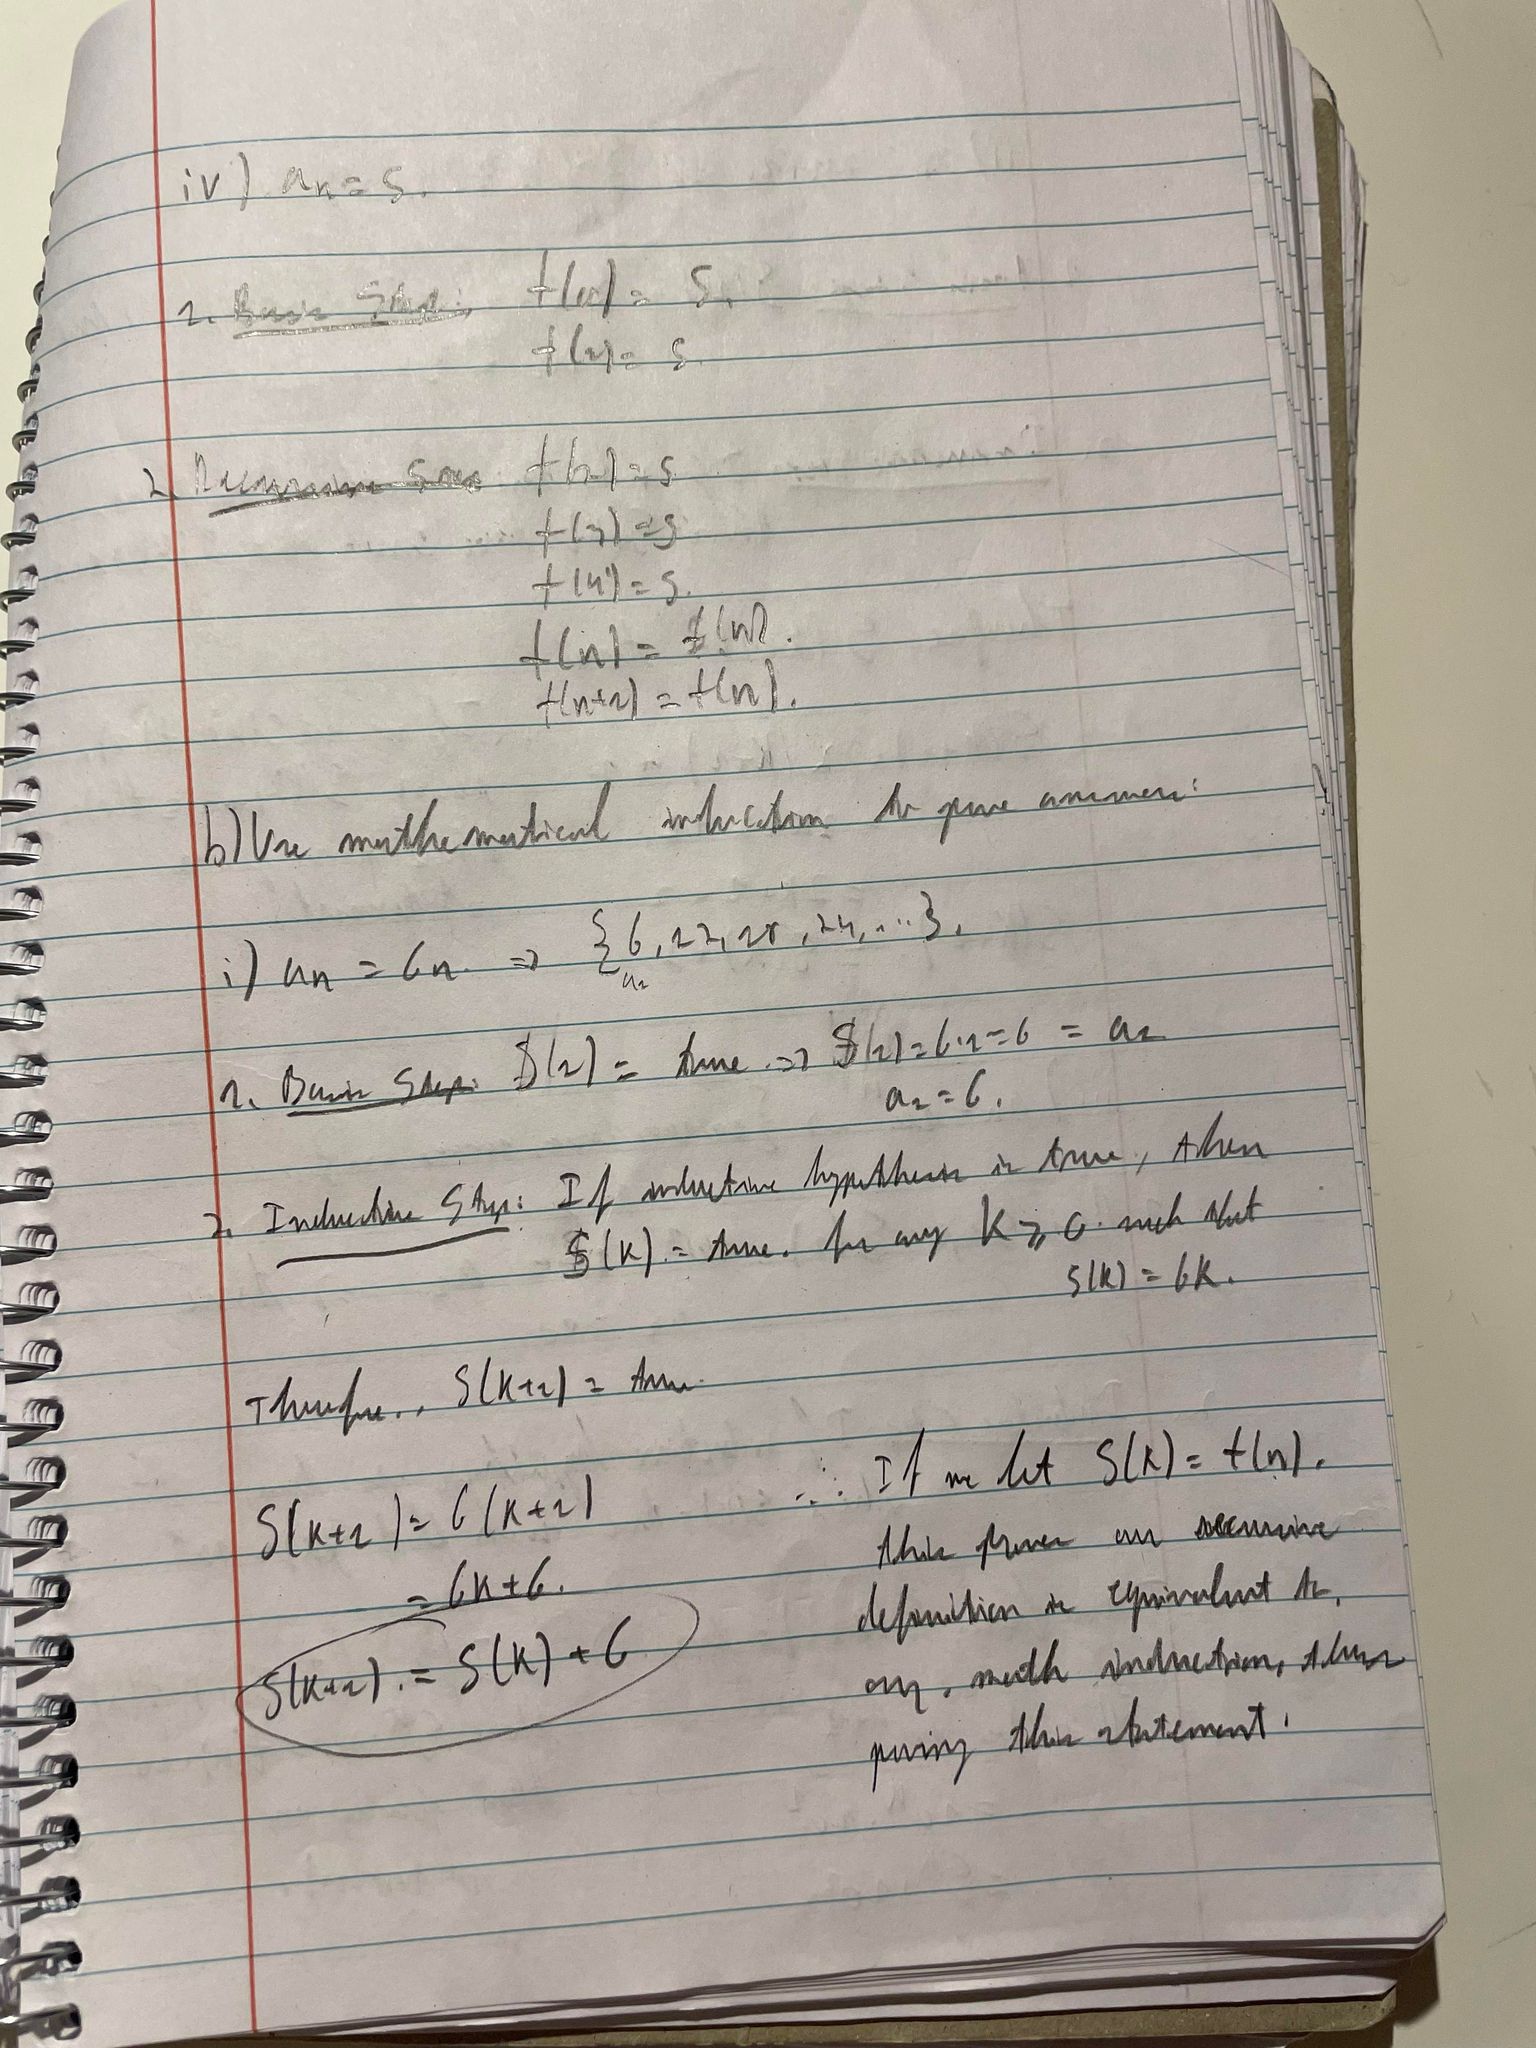 iv) an = 5.
1. Basis Step: f(n) = 5.
f(1) = 5.
2. Recursive Step f(2) = 5
f(3) = 5
f(4) = 5.
f(n) = f(n).
f(n+1) = f(n).
b) Use mathematical induction to prove answers:
i) an = 6n. ⇒ {6, 12, 18, 24, ...}.
a1
1. Basis Step: S(1) = true ⇒ S(1) = 6·1 = 6 = a1
a1 = 6.
2. Inductive Step: If inductive hypothesis is true, then
S(K) = true. for any K ⩾ 0. such that
S(K) = 6K.
Therefore, S(K+1) = true.
S(K+1) = 6(K+1)
= 6K+6.
S(K+1) = S(K) + 6
∴ If we let S(K) = f(n).
this proves our recursive
definition is equivalent to
our math induction, thus
proving this statement.